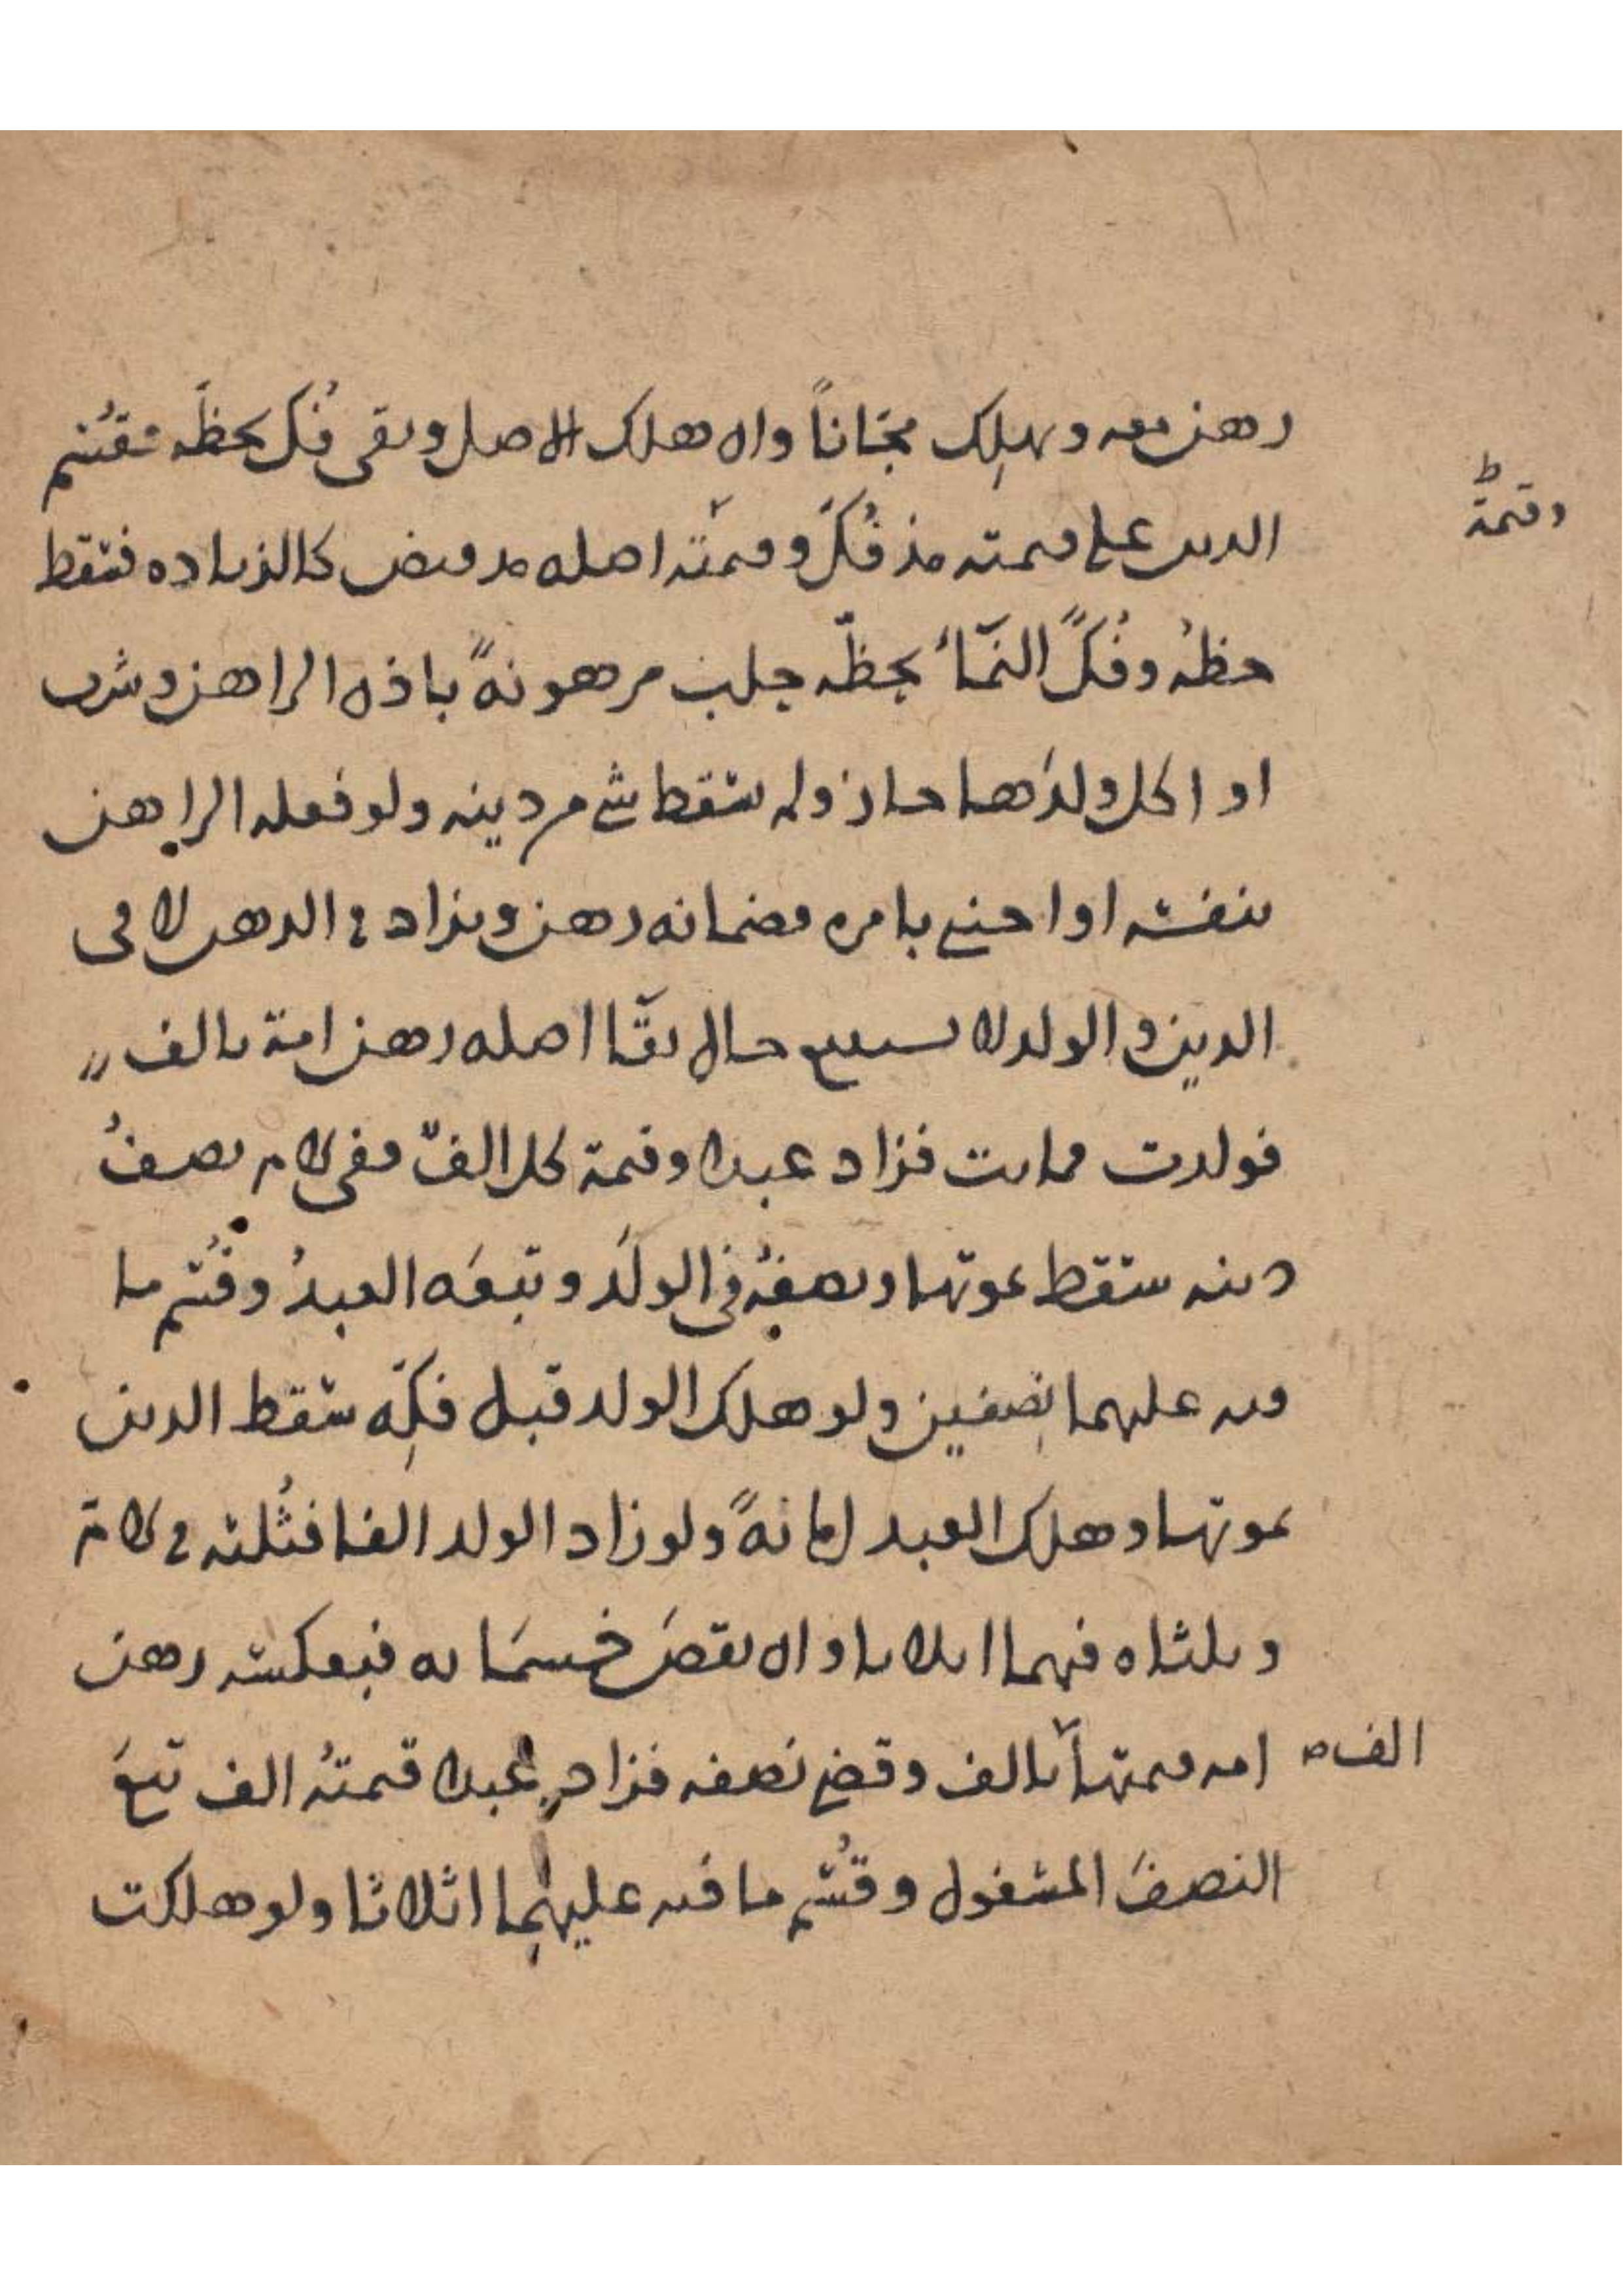 رهن معه ويهلك مجّاناً وان هلك الاصل وبقى فُكّ بحظّه فقُسّم
وقيمة ط
الدين على قيمته مذ فُكّ وقيمتُه اصله مذ قبض كالزياده فتقط
حظهُ وفُكّ النمَاءُ بحظّه جلب مرهونةً باذن الراهن وشرب
او اكل ولدَها جاز ولم يسقط شئ من دينه ولو فعله الراهن
بنفسه او اجنبى بامره فضمانه رهن ويزاد فى الرهن لا فى
الدين والولد لا يستتبع حال بقَا اصله رهن امة بالف
فولدت فماتت فزاد عبدا وقيمة كل الفٌ ففى الام نصفُ
دينه سقط بموتها ونصفهُ فى الولَد وتبعَه العبدُ وقُسّم ما
فيه عليهما نصفين ولو هلك الولد قبل فكِّه سقط الدين
بموتها وهلك العبد امانةً ولو زاد الولد الفا فثُلثه فى الام
وثلثاه فيهما اثلاثا وان نقصَ خمسمَايه فبعكسه رهن
امه قيمتها بالف وقضى نصفه فزاد عبدا قيمتهُ الف تبعَ
الف صح
النصفَ المشغول وقُسّم ما فيه عليهما اثلاثا ولو هلكت